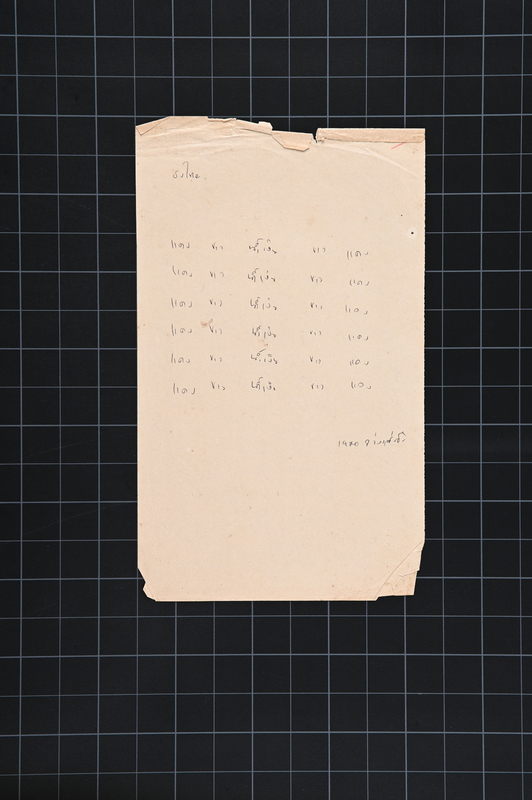 ธงไทย
แดง ขาว น้ำเงิน ขาว แดง
แดง ขาว น้ำเงิน ขาว แดง
แดง ขาว น้ำเงิน ขาว แดง
แดง ขาว น้ำเงิน ขาว แดง
แดง ขาว น้ำเงิน ขาว แดง
แดง ขาว น้ำเงิน ขาว แดง